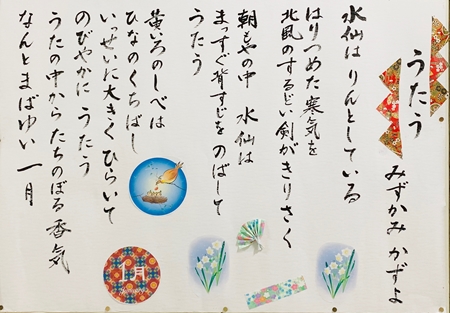 うたう
みずかみ かずよ
水仙は りんとしている
はりつめた寒気を
北風のするどい剣がきりさく
朝もやの中 水仙は
まっすぐ背すじを のばして
うたう
黄いろのしべは
ひなのくちばし
いっせいに大きく ひらいて
のびやかに うたう
うたの中から たちのぼる 香気
なんとまばゆい 一月
1月